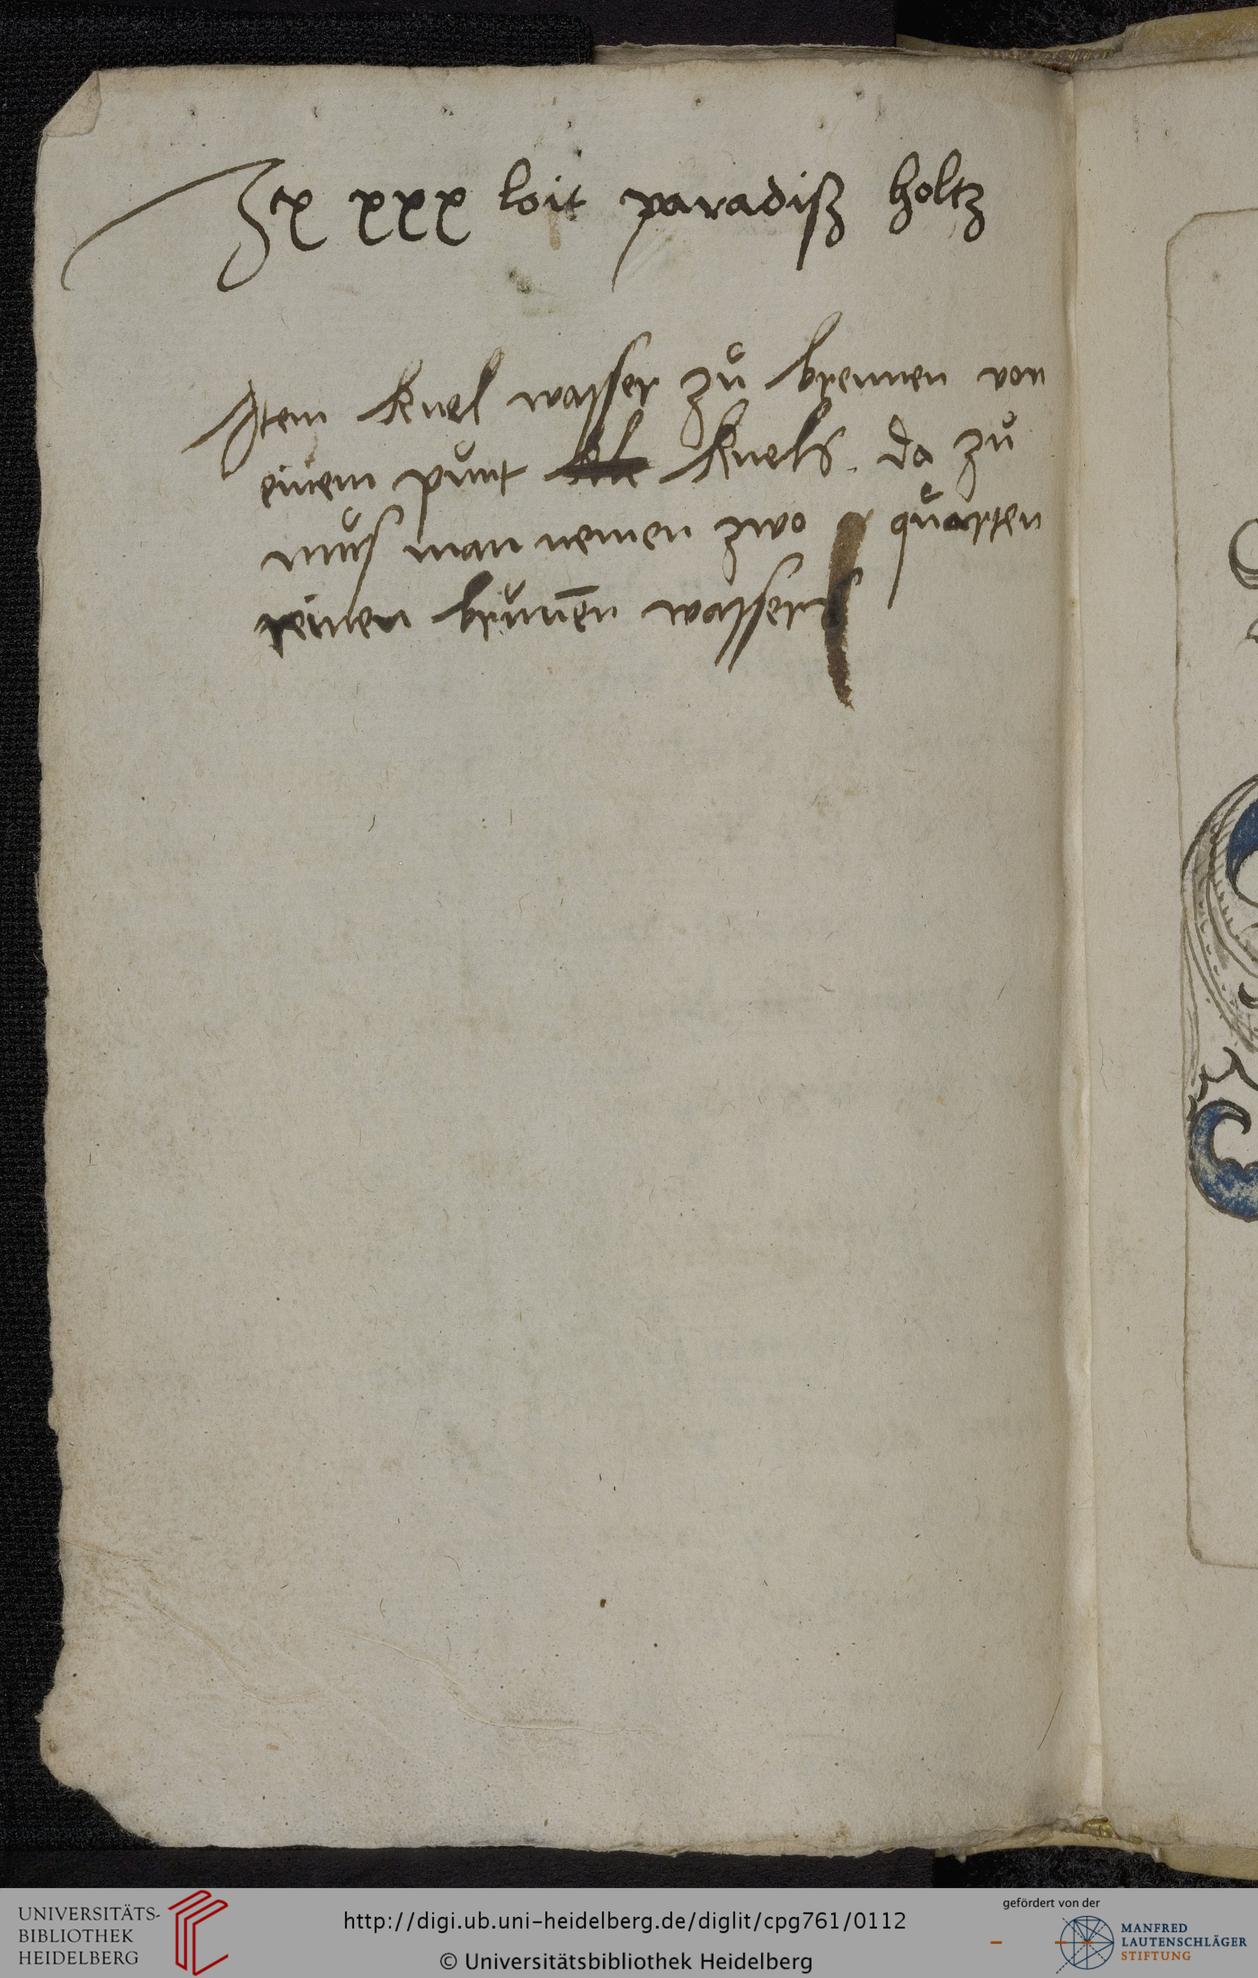 Itx xxx loit paradiß holtz
Item knel wasser zů brennen von
einem punt knels da zů
můs man nemen zwo quarten
reinen brunēn wassers
UNIVERSITÄTS-
BIBLIOTHEK
HEIDELBERG
http://digi.ub.uni-heidelberg.de/diglit/cpg761/0112
© Universitätsbibliothek Heidelberg
gefördert von der
MANFRED
LAUTENSCHLÄGER
STIFTUNG